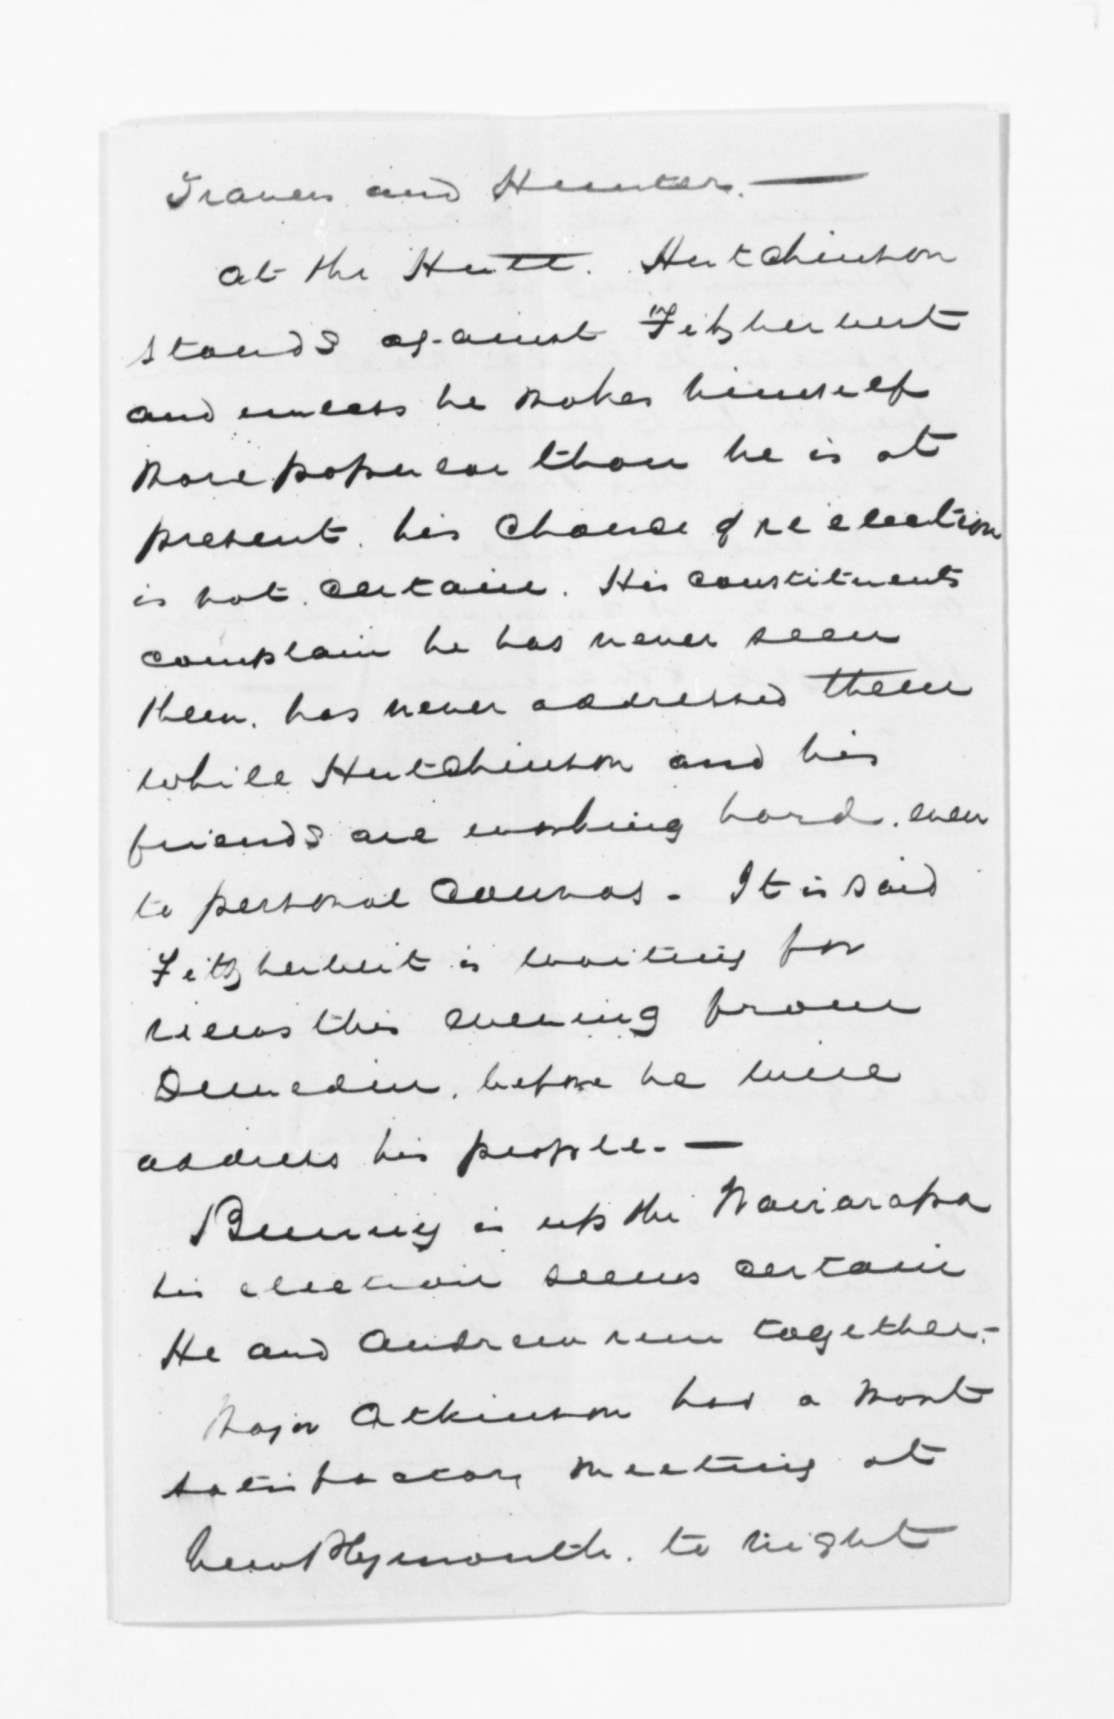 Travers and Hunter. —
at the Hutt. Hutchinson
stands against Fitzherbert
and unless he makes himself
more popular than he is at
present. his chance of re election
is not certain. His constituents
complain he has never seen
them. has never addressed them
while Hutchinson and his
friends are working hard. even
to personal canvas - It is said
Fitzherbert is waiting for
news this evening from
Dunedin. before he will
address his people. —
Bunny is up the Wairarapa
his election seems certain
He and Andrew run together. -
Major Atkinson had a most
satisfactory meeting at
New Plymouth. to night